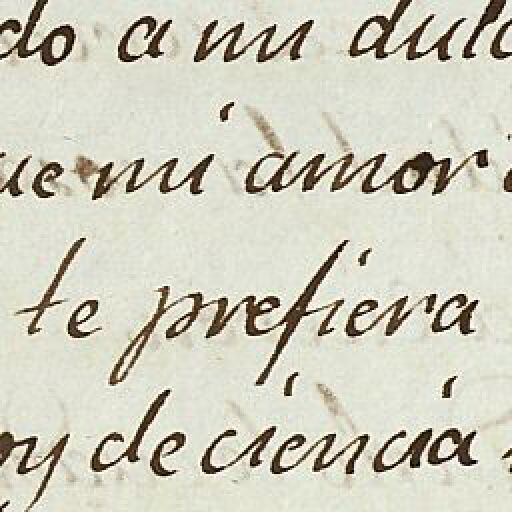 do a mi dulc
ue mi amor
te prefiera
oy de ciencia